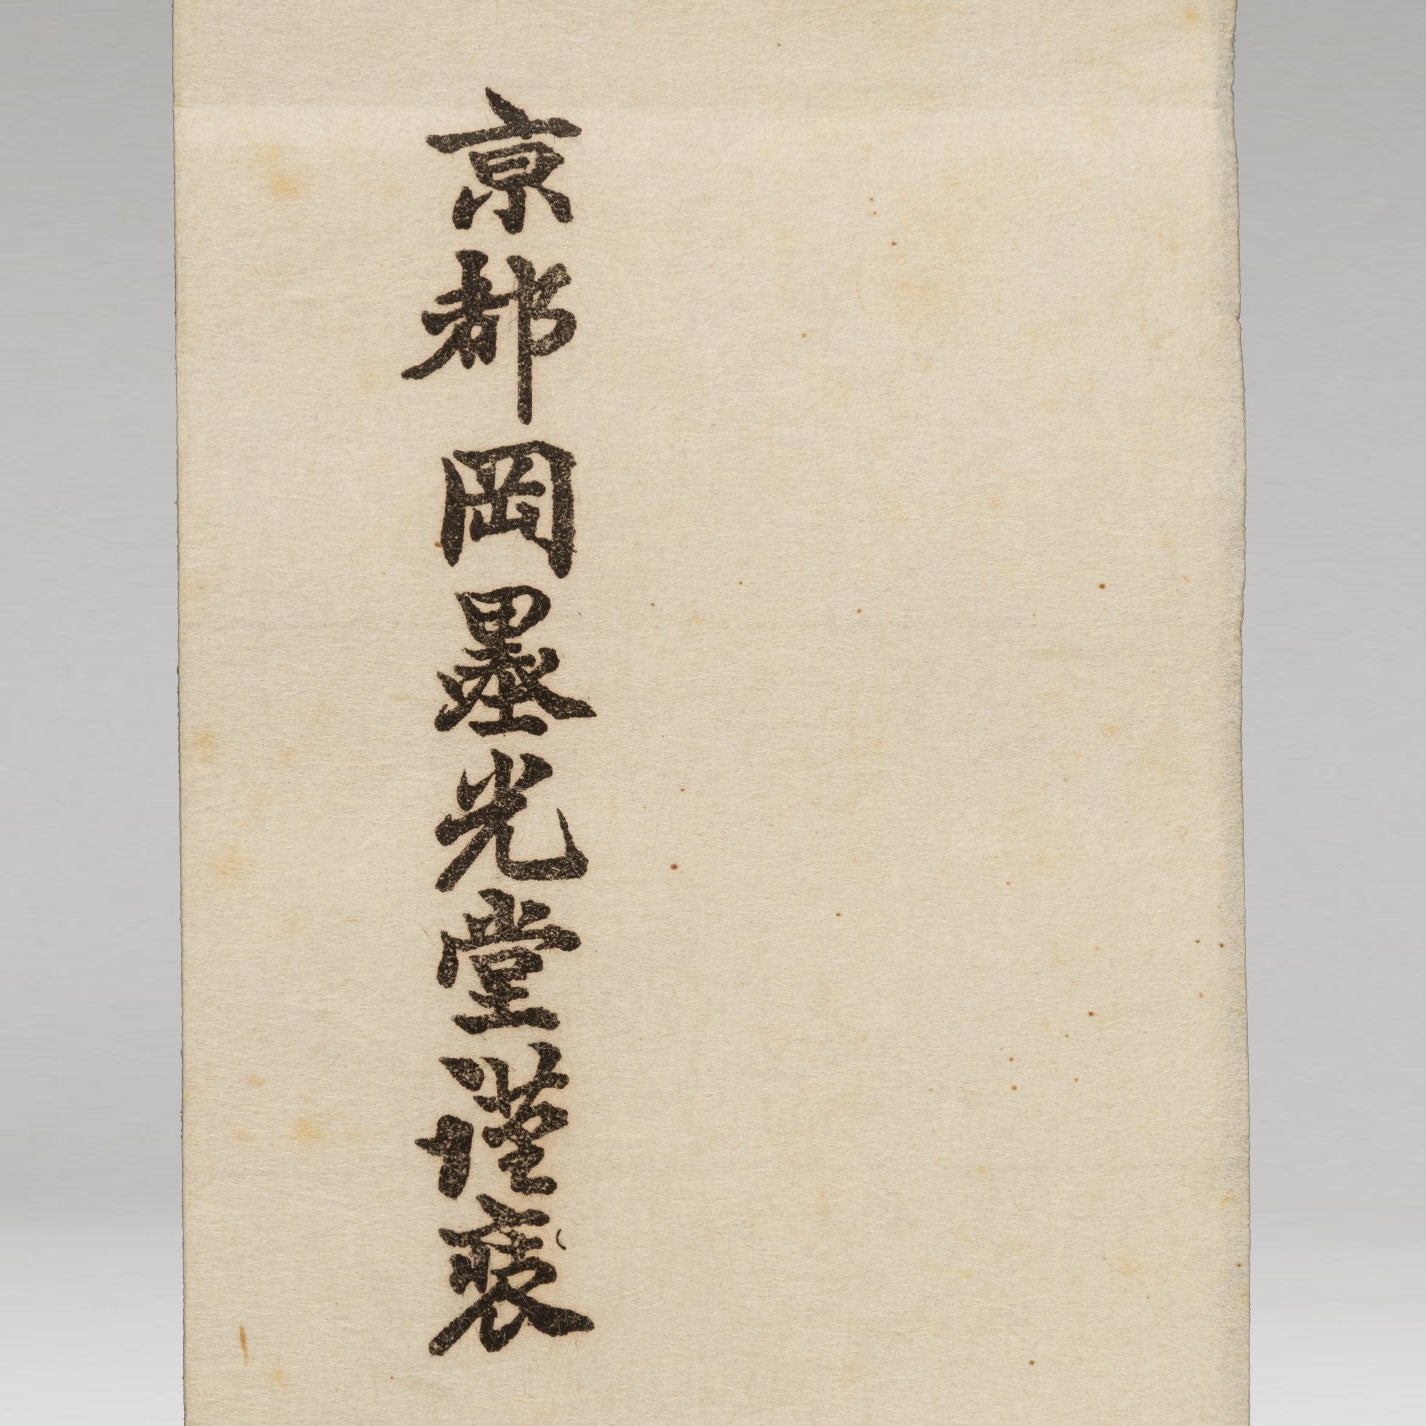 京都岡墨光堂謹